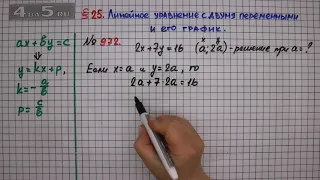 4 5
§ 25. Линейное уравнение с двумя переменными и его график.
ax + by = c
⇓
y = kx + p,
k = - a/b
p = c/b
№ 972. 2x + 7y = 16 (a; 2a) - решение при a = ?
x y
Если x = a и y = 2a, то
2a + 7 · 2a = 16